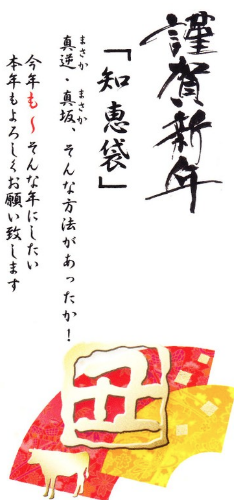 謹賀新年
「知恵袋」
まさか　まさか
真逆・真坂、そんな方法があったか！
今年も～そんな年にしたい
本年もよろしくお願い致します
丑